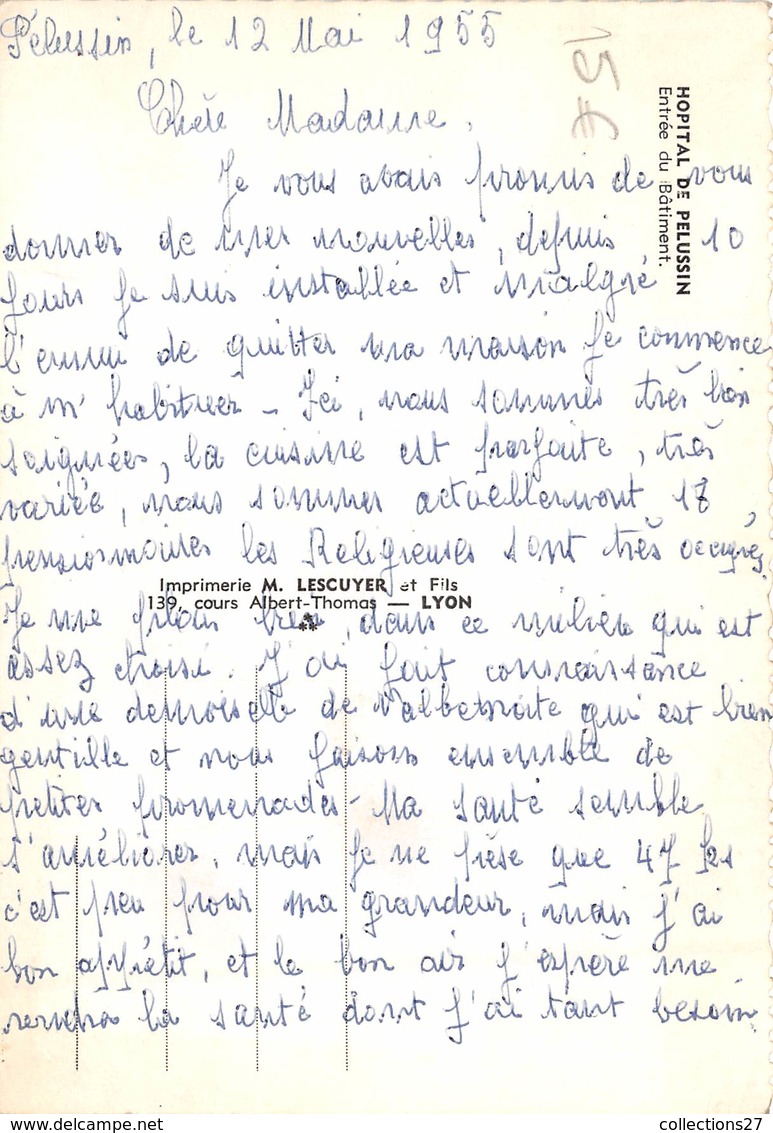 Pélussin, le 12 Mai 1955
15€
HOPITAL DE PELUSSIN
Entrée du Bâtiment.
Chère Madame,
Je vous avais promis de vous
donner de mes nouvelles, depuis 10
jours je suis installée et malgré
l'ennui de quitter ma maison je commence
à m'habituer - Ici, nous sommes très bien
soignées, la cuisine est parfaite, très
variée, nous sommes actuellement 18
pensionnaires les Religieuses sont très occupées,
Imprimerie M. LESCUYER et Fils
139, cours Albert-Thomas — LYON
Je me plais bien, dans ce milieu qui est
assez choisi. J'ai fait connaissance
d'une demoiselle de Valbenoite qui est bien
gentille et nous faisons ensemble de
petites promenades - Ma santé semble
s'améliorer, mais je ne pèse que 47
c'est peu pour ma grandeur, mais j'ai
bon appétit, et le bon air j'espère me
rendra la santé dont j'ai tant besoin.
collections27